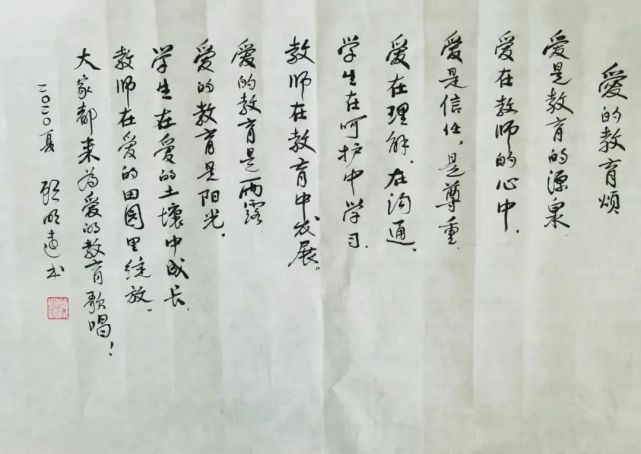 爱的教育颂
爱是教育的源泉
爱在教师的心中.
爱是信任、是尊重.
爱在理解.在沟通.
学生在呵护中学习.
教师在教育中发展.
爱的教育是雨露
爱的教育是阳光.
学生在爱的土壤中成长.
教师在爱的田园里绽放.
大家都来为爱的教育歌唱！
二〇二〇夏 顾明远书